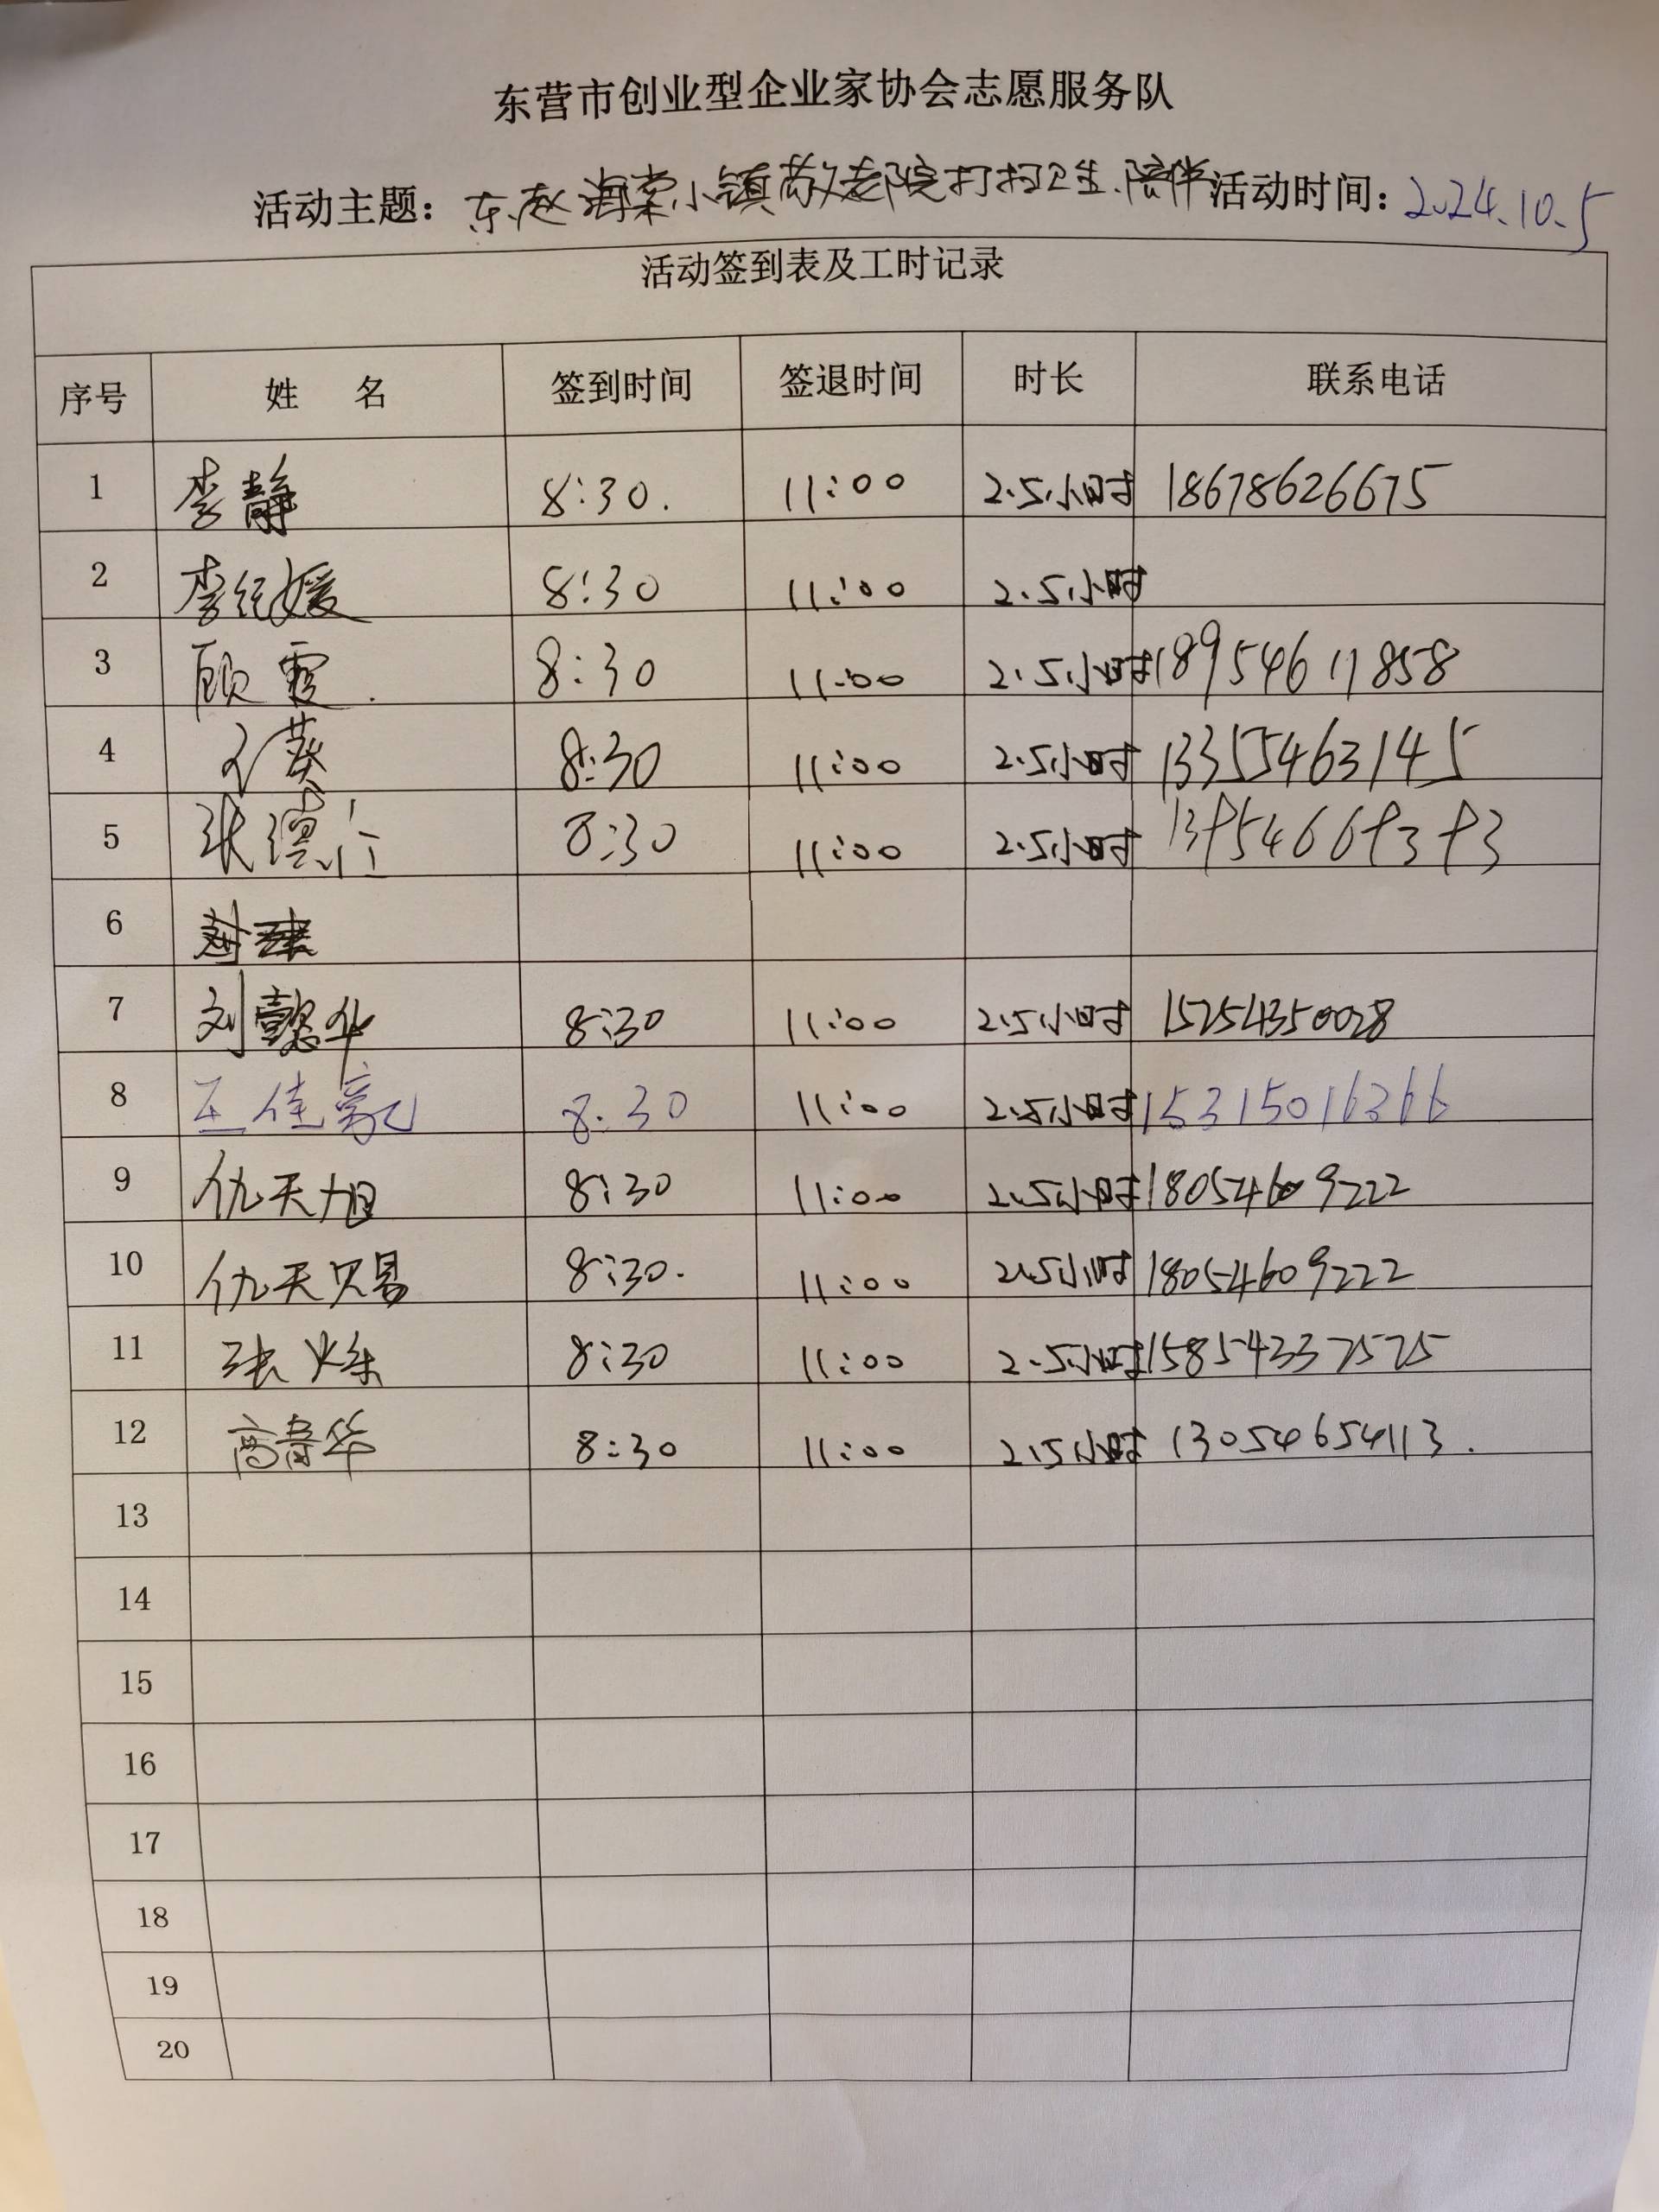 东营市创业型企业家协会志愿服务队
活动主题：东赵海棠小镇敬老院打扫卫生、陪伴 活动时间：2024.10.5
活动签到表及工时记录
序号 姓 名 签到时间 签退时间 时长 联系电话
1 李静 8:30. 11:00 2.5小时 18678626675
2 李纪媛 8:30 11:00 2.5小时
3 顾霞. 8:30 11:00 2.5小时 18954611858
4 8:30 11:00 2.5小时 13355463145
5 8:30 11:00 2.5小时
6
7 刘懿华 8:30 11:00 2.5小时 15254350028
8 王佳豪 8:30 11:00 2.5小时 15315016366
9 仇天旭 8:30 11:00 2.5小时 18054609222
10 仇天赐 8:30. 11:00 2.5小时 18054609222
11 张烁 8:30 11:00 2.5小时 15854337575
12 高青华 8:30 11:00 2.5小时 13054654113.
13
14
15
16
17
18
19
20